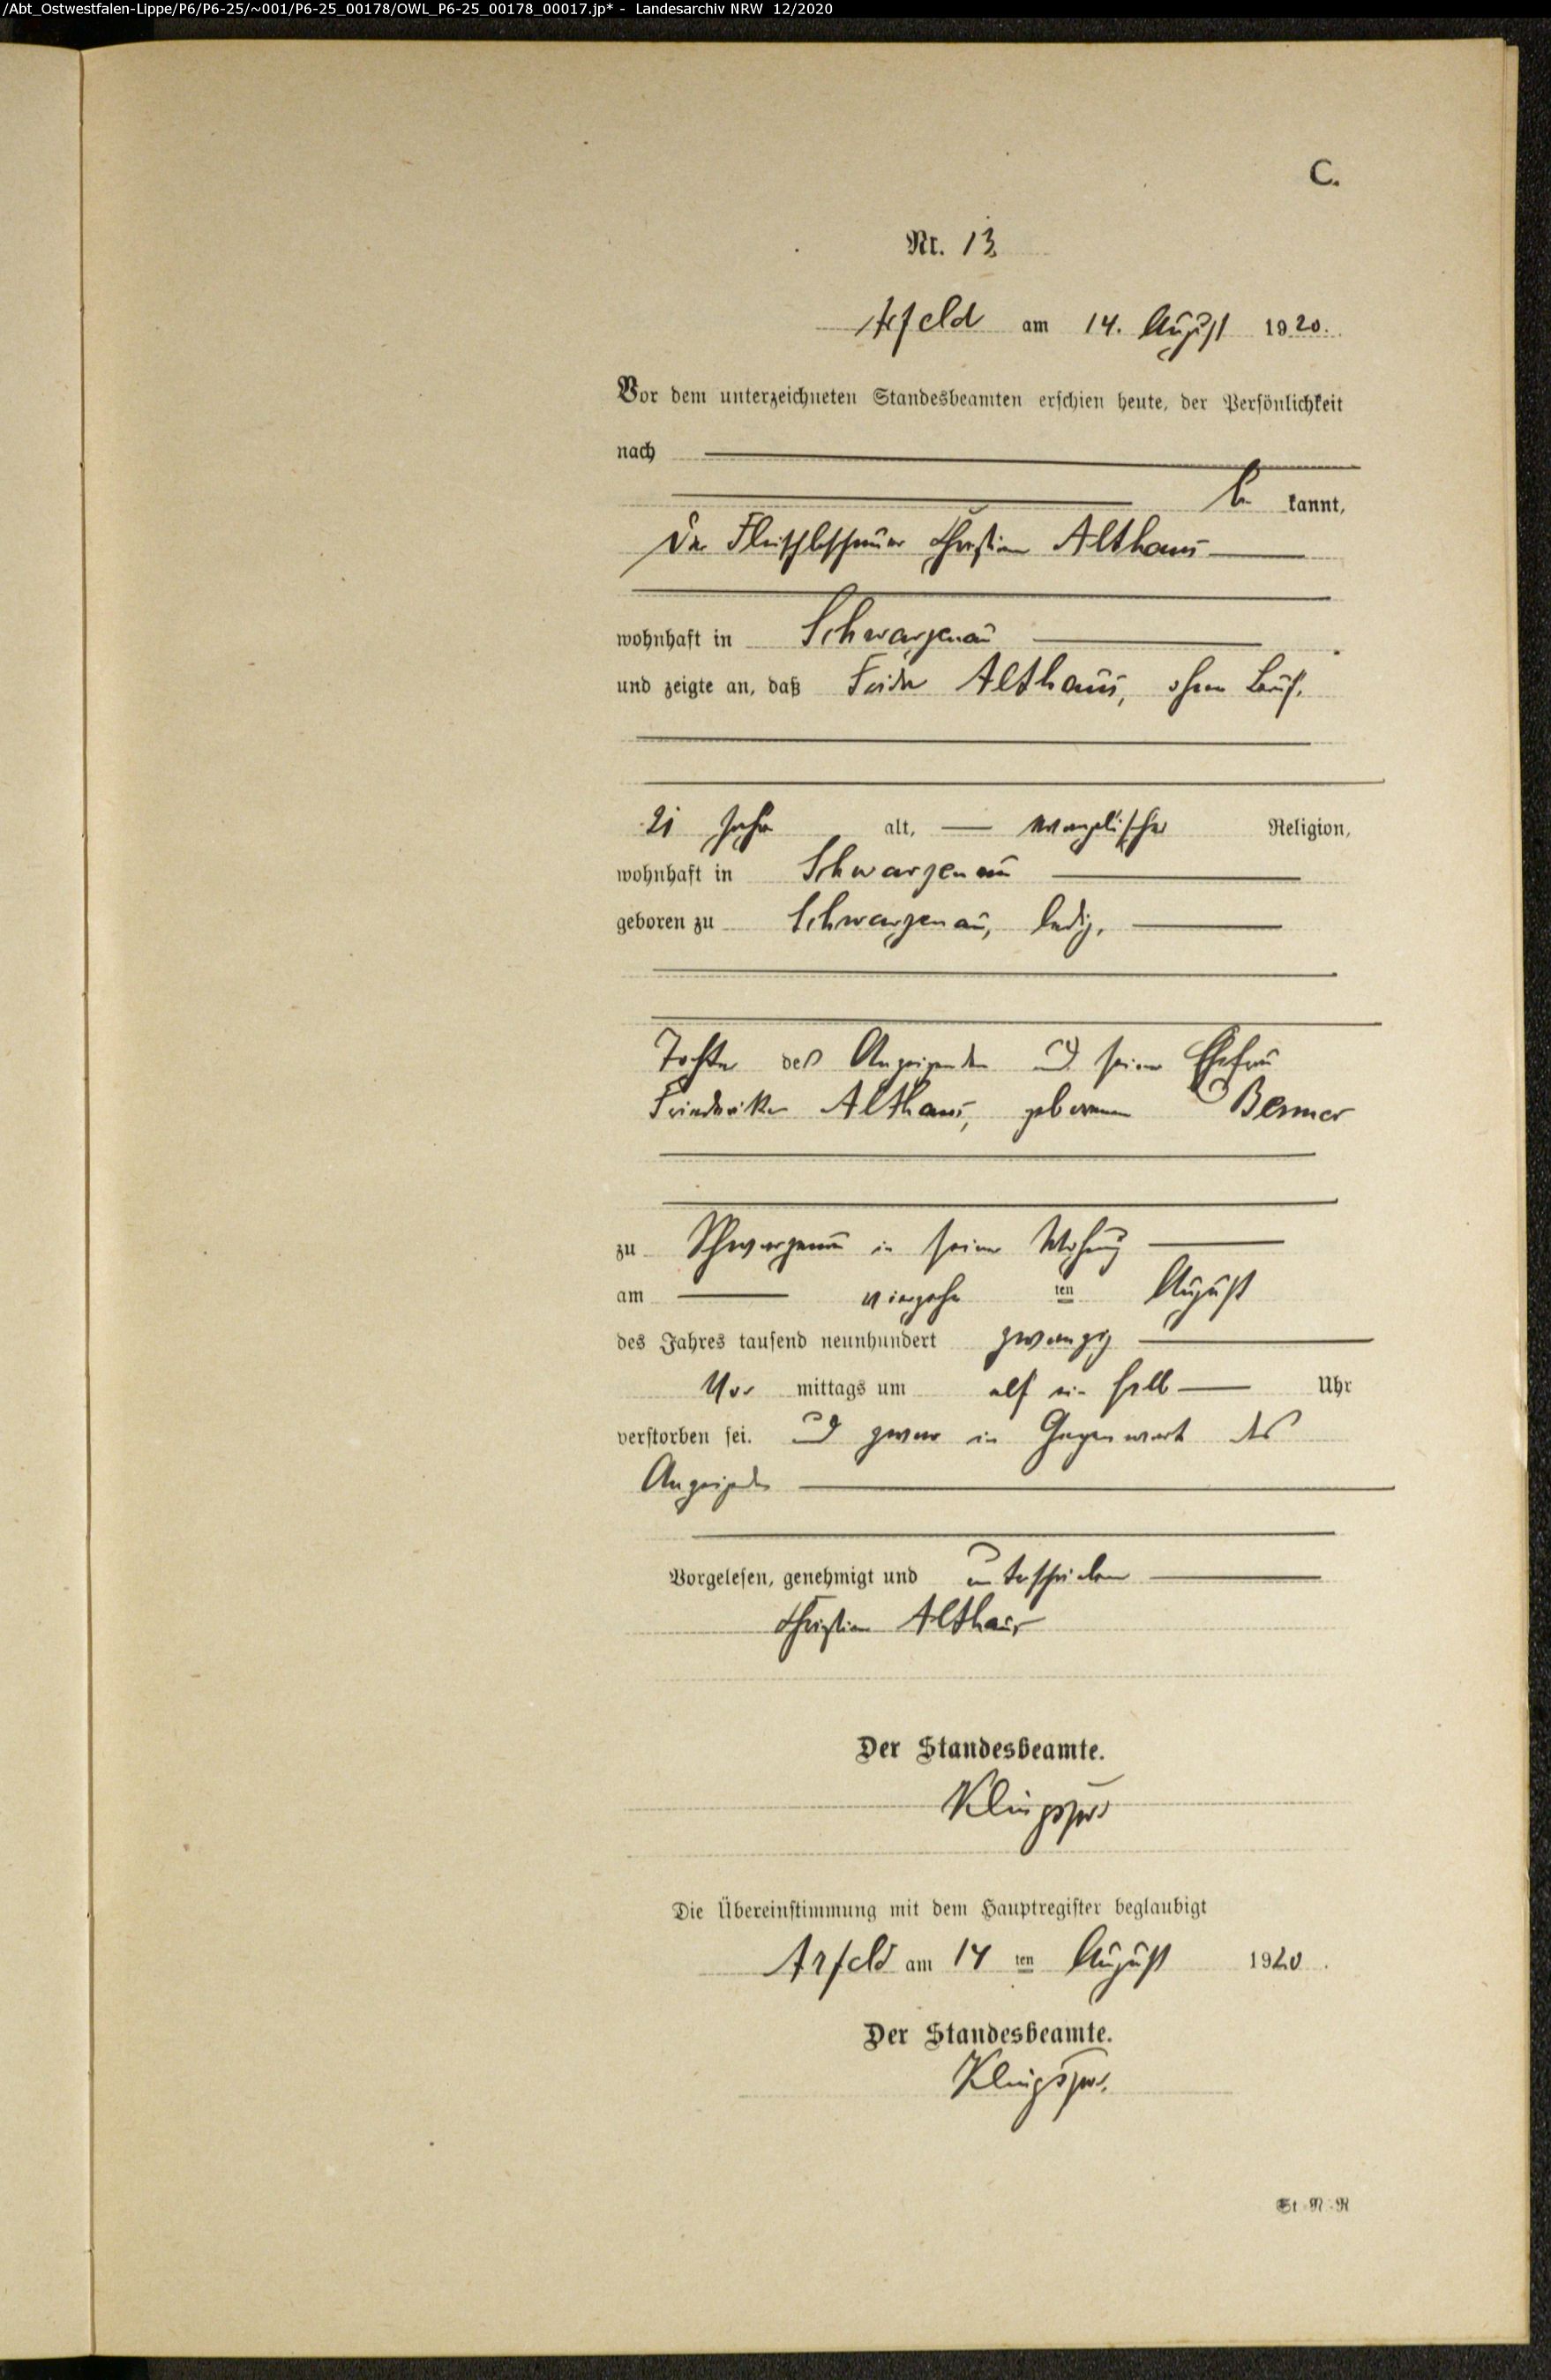 /Abt_Ostwestfalen-Lippe/P6/P6-25/~001/P6-25_00178/OWL_P6-25_00178_00017.jp* - Landesarchiv NRW 12/2020
C.
Nr. 13
Arfeld am 14. August 1920.
Vor dem unterzeichneten Standesbeamten erschien heute, der Persönlichkeit
nach
be kannt,
der Fleischbeschauer Christian Althaus
wohnhaft in Schwarzenau
und zeigte an, daß Frieda Althaus, ohne Beruf,
21 Jahre alt, evangelischer Religion,
wohnhaft in Schwarzenau
geboren zu Schwarzenau, ledig,
Tochter des Anzeigenden und seiner Ehefrau
Friederike Althaus, geborenen
zu Schwarzenau in seiner Wohnung
am vierzehn ten August
des Jahres tausend neunhundert zwanzig
Vor mittags um elf ein halb Uhr
verstorben sei. und zwar in Gegenwart des
Anzeigenden
Vorgelesen, genehmigt und unterschrieben
Christian Althaus
Der Standesbeamte.
Klingspor
Die Übereinstimmung mit dem Hauptregister beglaubigt
Arfeld am 14 ten August 1920.
Der Standesbeamte.
Klingspor.
St. R.